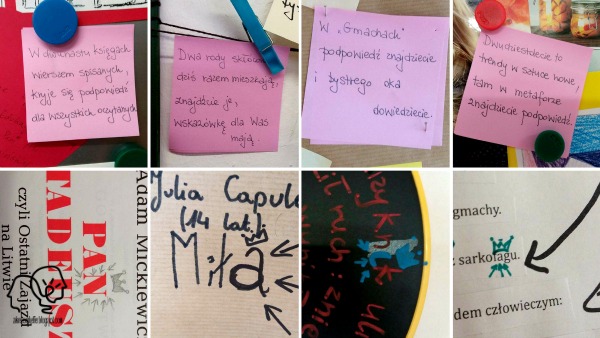 W dwunastu księgach
wierszem spisanych,
kryje się podpowiedź
dla wszystkich oczytanych.
ży.
Dwa rody
dziś razem mieszkają,
znajdźcie je,
wskazówkę dla Was
mają.
W „Gmachach"
podpowiedź znajdziecie
i bystrego oka
dowiedziecie.
Dwudziestolecie to
trendy w sztuce nowe,
tam w metaforze
znajdziecie podpowiedź.
Adam Mickiewic
PAN
TADEUSZ
czyli Ostatni Zajazd
na Litwie
Julia Capule
(14 lat)
Miła
gmachy.
z sarkofagu.
dem człowieczym: